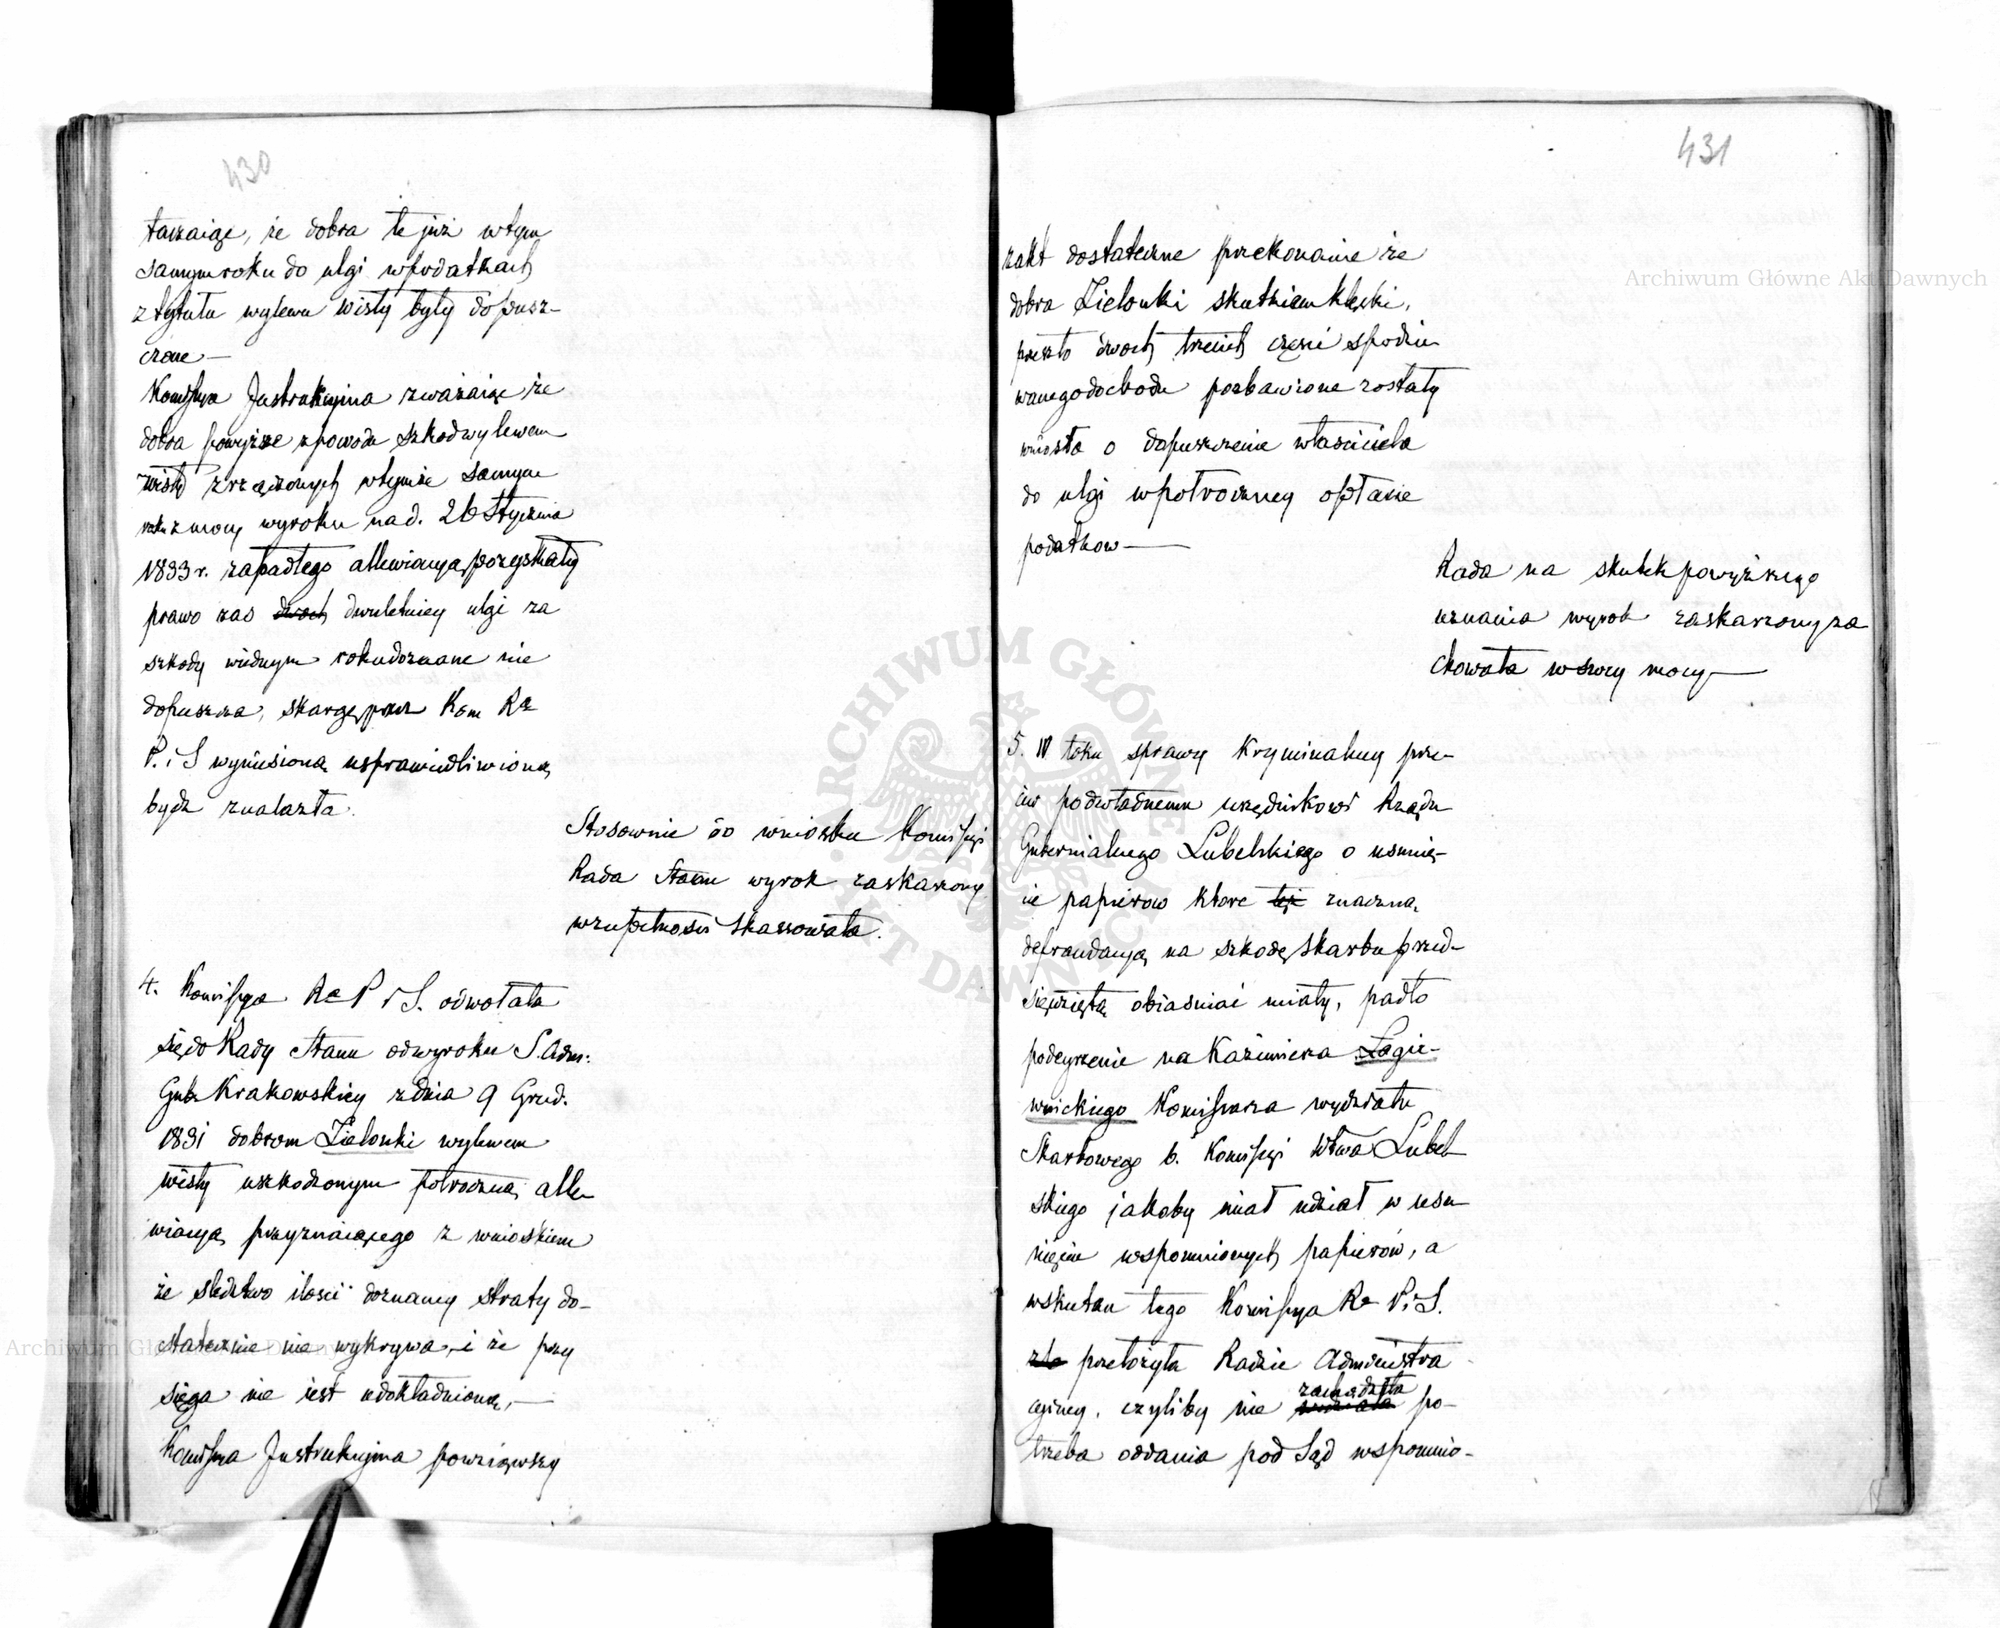 430
taczaiąc, że dobra te już w tym
samym roku do ulgi w podatkach
z tytułu wylewu Wisły były dopusz-
czone —
Komissya Instrukcyina zważaiąc że
dobra powyższe z powodu szkod wylewem
Wisły zrządzonych w tymże samym
roku z mocy wyroku na d. 26 Stycznia
1833 r. zapadłego allewiacyą pozyskały
prawo zas dwoch dwuletniey ulgi za
szkody w iednym roku doznane nie
dopuszcza, skargę przez Kom Rz
P. i S wyniesioną usprawiedliwioną
bydz znalazła.
Stosownie do wniosku Komissyi
Rada Stanu wyrok zaskarzony
w zupełności skassowała.
4. Komissya Rz P i S. odwołała
się do Rady Stanu od wyroku S. Adm:
Gub Krakowskiey z dnia 9 Grud.
1831 dobrom Zielonki wylewem
Wisły uszkodzonym połroczną alle-
wiacyą przyznaiącego z wnioskiem
że śledztwo ilości doznaney straty do-
statecznie nie wykrywa, i że przy
sięga nie iest udokładnioną, —
Komissya Instrukcyina powziąwszy
431
z akt dostateczne przekonanie że
dobra Zielonki skutkiem klęski,
przeszło dwoch trzecich części spodzie
wanego dochodu pozbawione zostały
wniosła o dopuszczenie właściciela
do ulgi w połroczney opłacie
podatkow —
Rada na skutek powyższego
uznania wyrok zaskarzony za
chowała w swey mocy —
5. W toku sprawy kryminalney prze-
ciw podwładnemu urzędnikowi Rządu
Gubernialnego Lubelskiego o usunię-
cie papierow ktore tęż znaczną
defraudacyą na szkodę skarbu przed-
sięwziętą obiasniać miały, padło
podeyrzenie na Kazimierza Łagie-
wnickiego Komissarza wydziału
Skarbowego b. Komissyi Wtwa Lubel
skiego jakoby miał udział w usu
nięciu wspomnionych papierów, a
wskutku tego Komissya Rz P. i S.
zło przełożyła Radzie Administra
cyiney, czyliby nie zachodziła po-
trzeba oddania pod Sąd wspomnio-
Archiwum Główne Akt Dawnych
Archiwum Główne Akt Dawnych
ARCHIWUM GŁÓWNE AKT DAWNYCH